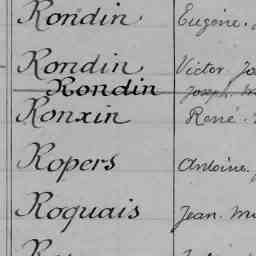 Rondin Eugène
Rondin Victor
Rondin Joseph
Ronxin René
Ropers Antoine
Roquais Jean